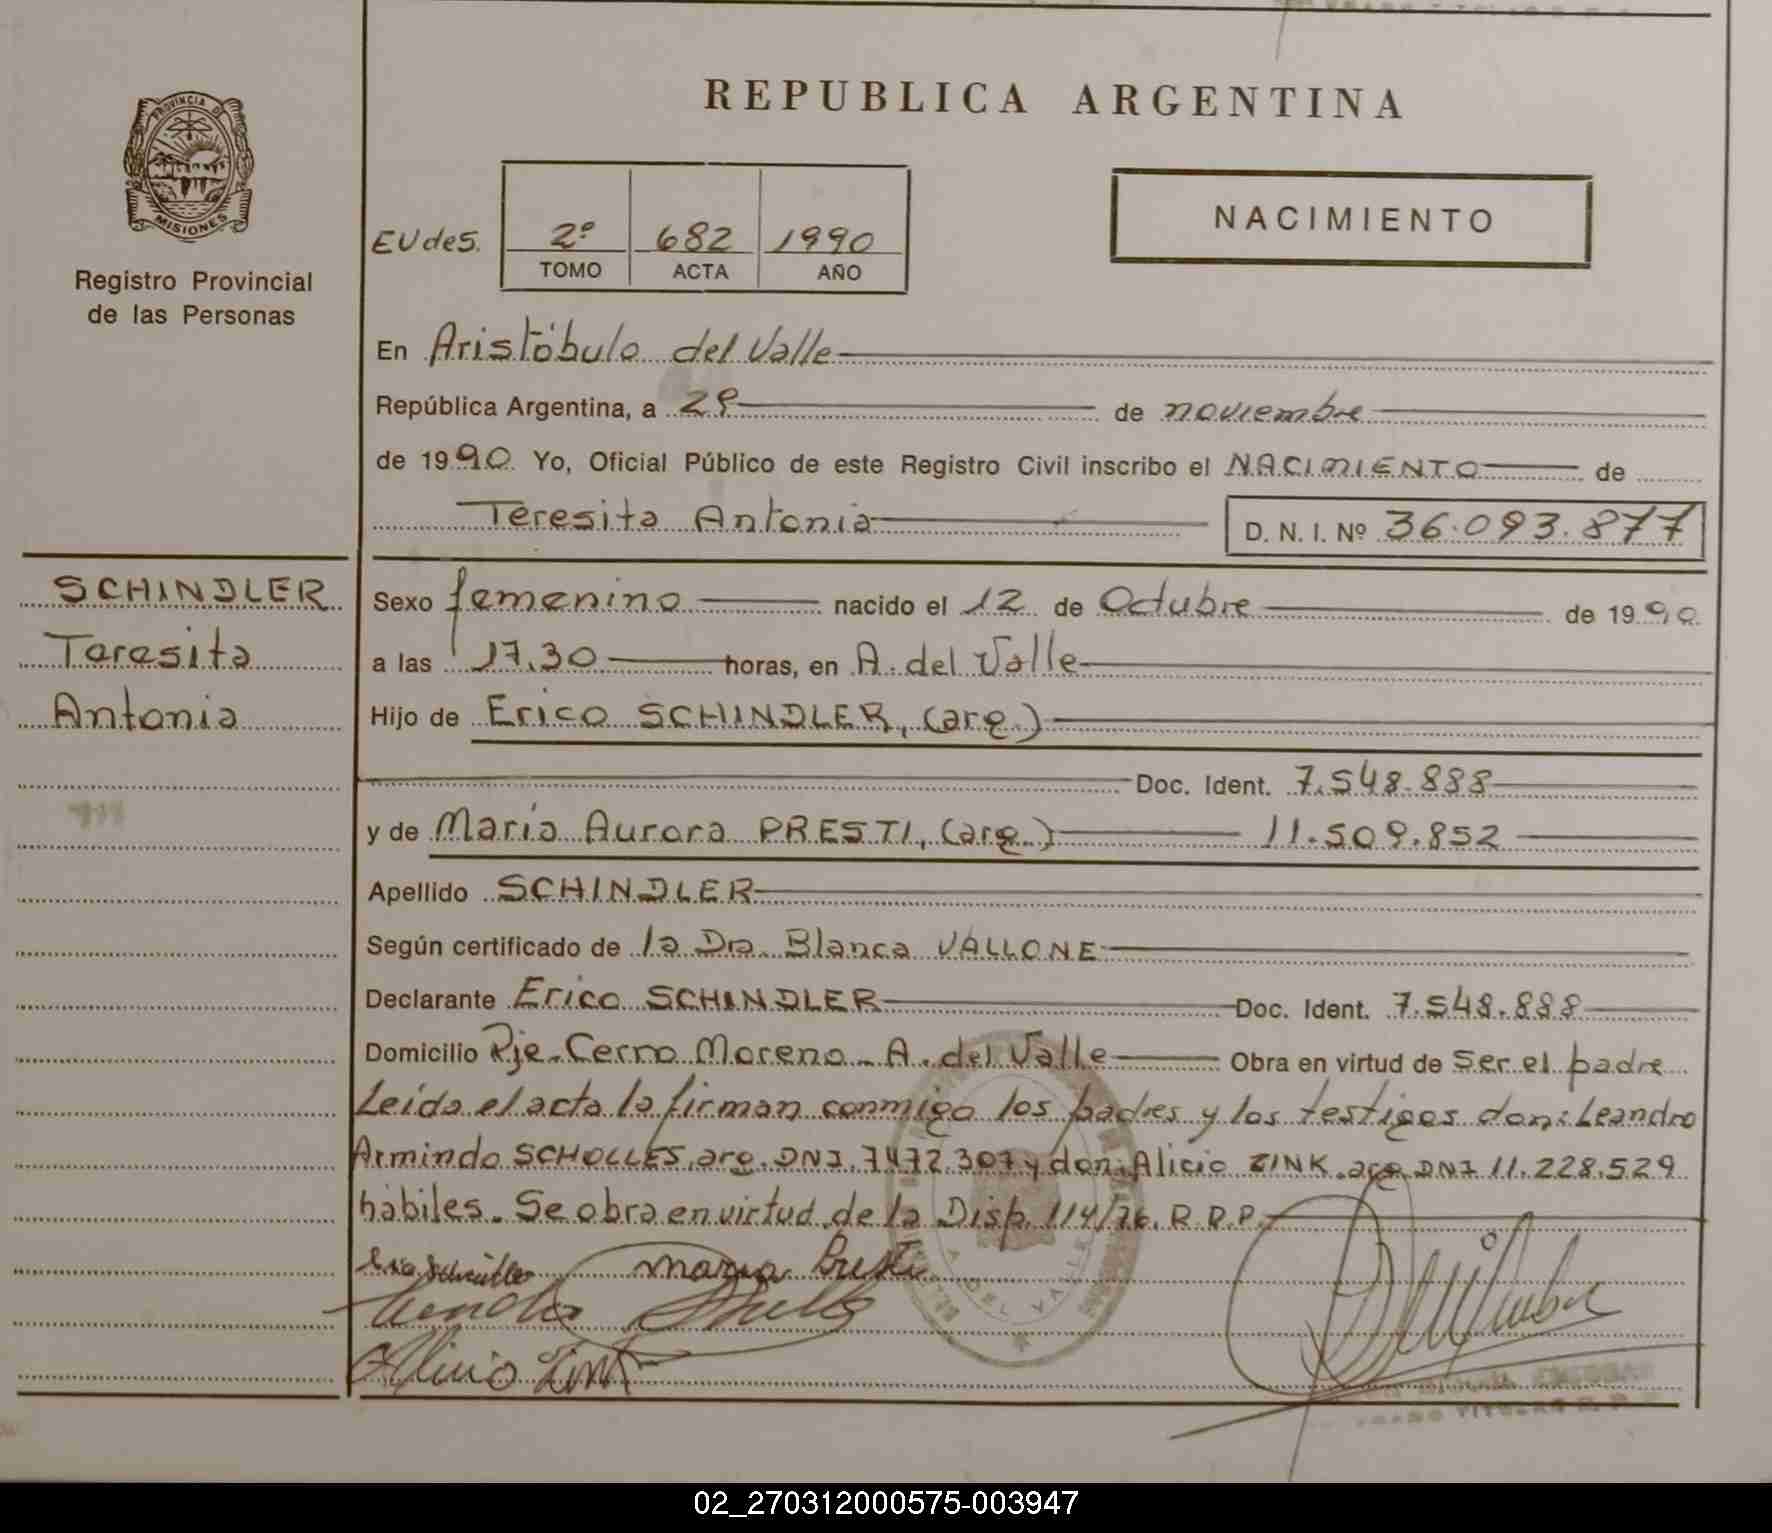 REPUBLICA ARGENTINA
PROVINCIA DE
MISIONES
Registro Provincial
de las Personas
EUdeS. 2º 682 1990
TOMO ACTA AÑO
NACIMIENTO
En Aristóbulo del Valle
República Argentina, a de noviembre
de 1990. Yo, Oficial Público de este Registro Civil inscribo el NACIMIENTO de
Teresita Antonia D. N. I. Nº 36.093.877
SCHINDLER
Teresita
Antonia
Sexo femenino nacido el 12 de Octubre de 1990
a las 17.30 horas, en A. del Valle
Hijo de Erico SCHINDLER, (arg.)
Doc. Ident. 7.548.888
y de Maria Aurora PRESTI, (arg.) 11.509.852
Apellido SCHINDLER
Según certificado de la Dra. Blanca VALLONE
Declarante Erico SCHINDLER Doc. Ident. 7.548.888
Domicilio Pje. Cerro Moreno - A. del Valle Obra en virtud de Ser el padre
Leida el acta la firman conmigo los padres y los testigos don: Leandro
Armindo SCHOLLES, arg. DNI. 7472.307 y don: Alicio ZINK. arg. DNI 11.228.529
hábiles. Se obra en virtud de la Disp. 114/76. R.P.P.
maria Presti
Alicio Zink
02_270312000575-003947